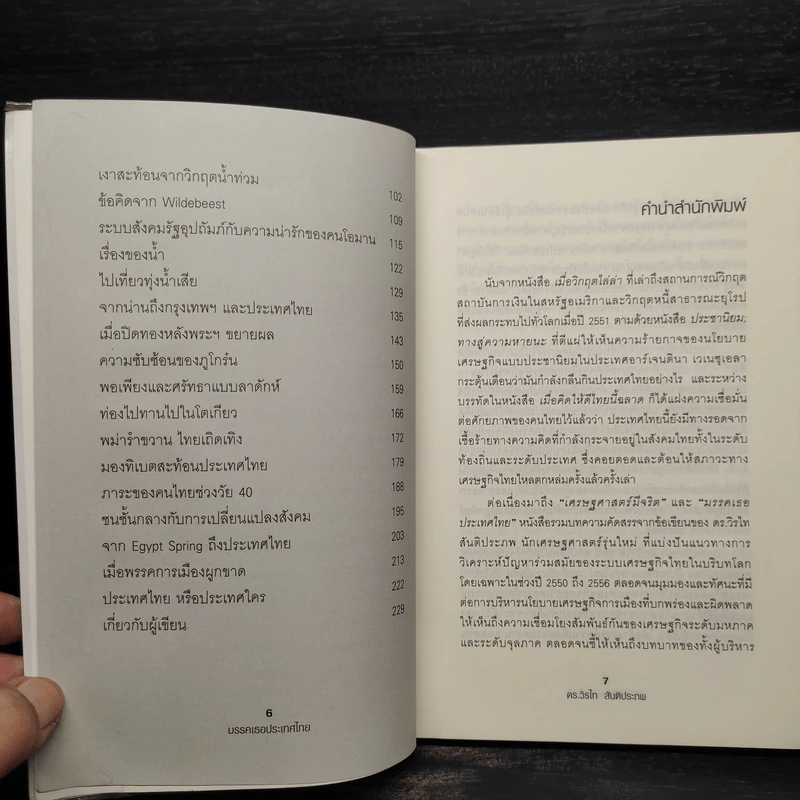 เงาสะท้อนจากวิกฤตน้ำท่วม 102
ข้อคิดจาก Wildebeest 109
ระบบสังคมรัฐอุปถัมภ์กับความน่ารักของคนโอมาน 115
เรื่องของน้ำ 122
ไปเที่ยวทุ่งน้ำเสีย 129
จากน่านถึงกรุงเทพฯ และประเทศไทย 135
เมื่อปิดทองหลังพระฯ ขยายผล 143
ความซับซ้อนของภูโกร๋น 150
พอเพียงและศรัทธาแบบลาดักห์ 159
ท่องไปทานไปในโตเกียว 166
พม่ารำขวาน ไทยเถิดเทิง 172
มองทิเบตสะท้อนประเทศไทย 179
ภาระของคนไทยช่วงวัย 40 188
ชนชั้นกลางกับการเปลี่ยนแปลงสังคม 195
จาก Egypt Spring ถึงประเทศไทย 203
เมื่อพรรคการเมืองผูกขาด 213
ประเทศไทย หรือประเทศใคร 222
เกี่ยวกับผู้เขียน 229
6
มรรคเธอประเทศไทย
คำนำสำนักพิมพ์
นับจากหนังสือ เมื่อวิกฤตไล่ล่า ที่เล่าถึงสถานการณ์วิกฤต
สถาบันการเงินในสหรัฐอเมริกาและวิกฤตหนี้สาธารณะยุโรป
ที่ส่งผลกระทบไปทั่วโลกเมื่อปี 2551 ตามด้วยหนังสือ ประชานิยม;
ทางสู่ความหายนะ ที่ตีแผ่ให้เห็นความร้ายกาจของนโยบาย
เศรษฐกิจแบบประชานิยมในประเทศอาร์เจนตินา เวเนซุเอลา
กระตุ้นเตือนว่ามันกำลังกลืนกินประเทศไทยอย่างไร และระหว่าง
บรรทัดในหนังสือ เมื่อคิดให้ดีโลกนี้ฉลาด ก็ได้แฝงความเชื่อมั่น
ต่อศักยภาพของคนไทยไว้แล้วว่า ประเทศไทยนี้ยังมีทางรอดจาก
เชื้อร้ายทางความคิดที่กำลังกระจายอยู่ในสังคมไทยทั้งในระดับ
ท้องถิ่นและระดับประเทศ ซึ่งคอยตอดและต้อนให้สภาวะทาง
เศรษฐกิจไทยไหลตกหล่มครั้งแล้วครั้งเล่า
ต่อเนื่องมาถึง "เศรษฐศาสตร์มีจริต" และ "มรรคเธอ
ประเทศไทย" หนังสือรวมบทความคัดสรรจากข้อเขียนของ ดร.วิรไท
สันติประภพ นักเศรษฐศาสตร์รุ่นใหม่ ที่แบ่งปันแนวทางการ
วิเคราะห์ปัญหาร่วมสมัยของระบบเศรษฐกิจไทยในบริบทโลก
โดยเฉพาะในช่วงปี 2550 ถึง 2556 ตลอดจนมุมมองและทัศนะที่มี
ต่อการบริหารนโยบายเศรษฐกิจการเมืองที่บกพร่องและผิดพลาด
ให้เห็นถึงความเชื่อมโยงสัมพันธ์กันของเศรษฐกิจระดับมหภาค
และระดับจุลภาค ตลอดจนชี้ให้เห็นถึงบทบาทของทั้งผู้บริหาร
7
ดร.วิรไท สันติประภพ